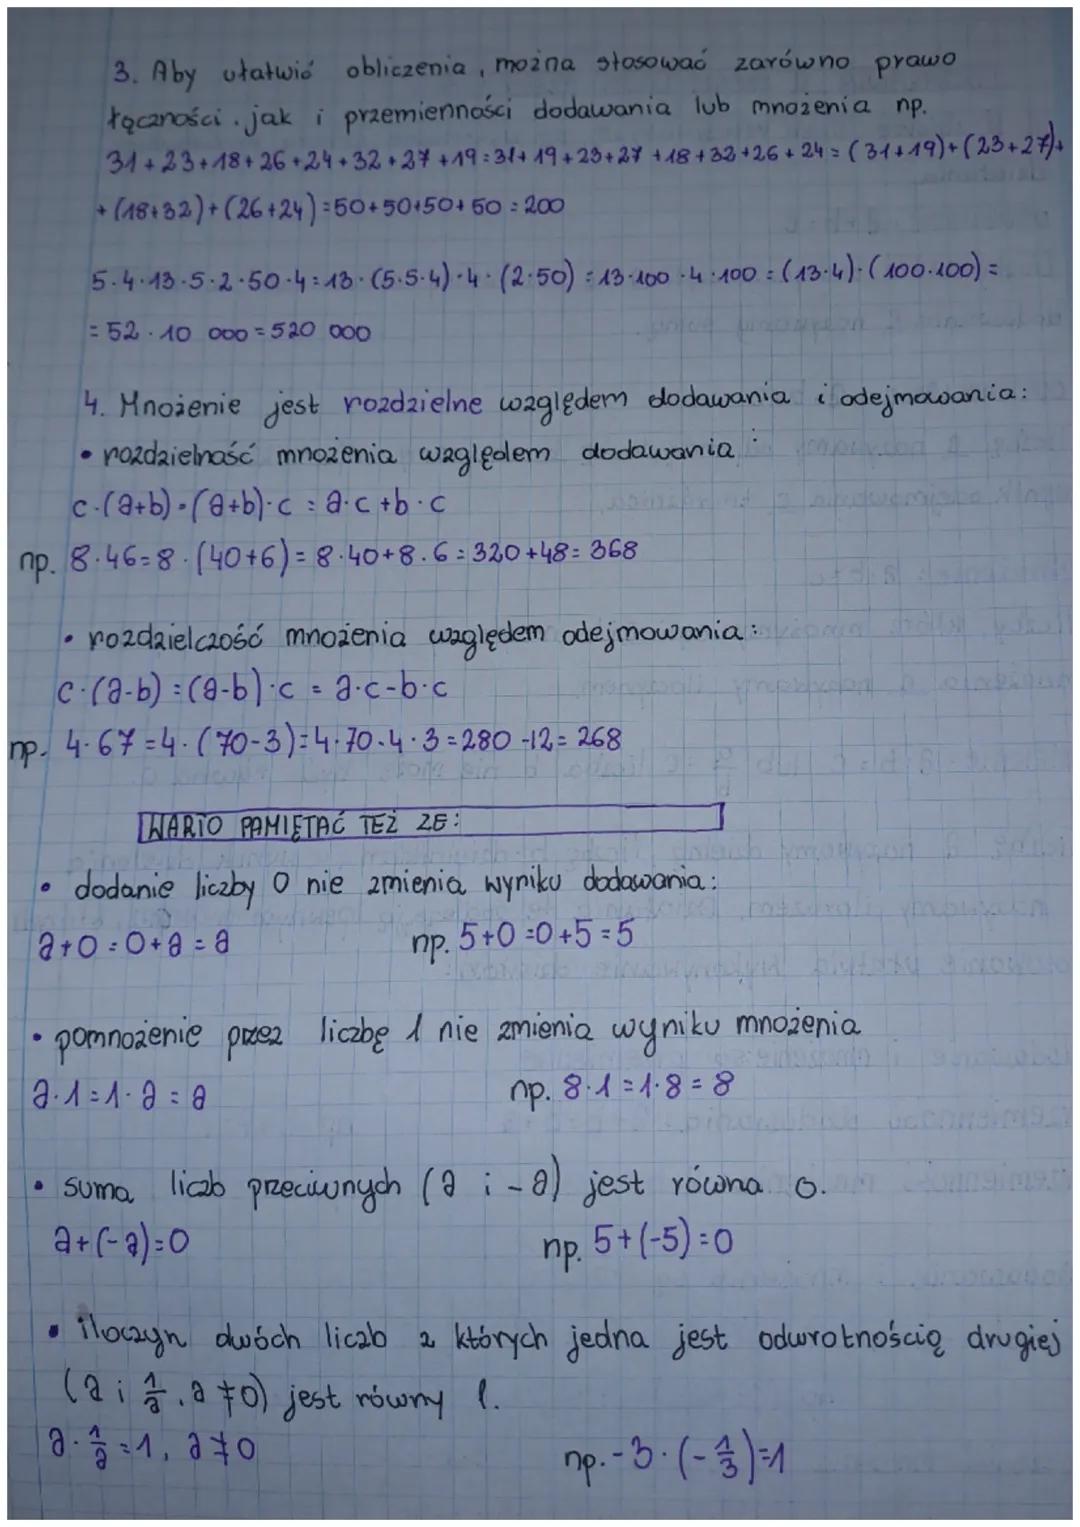 3. Aby ułatwić obliczenia, można stosować zarówno prawo
łączności jak i przemienności dodawania lub mnożenia np.
31+23+18+26+24+32+27+19=31+19+23+27+18+32+26+24=(31+19)+(23+27)+
+(18+32)+(26+24)=50+50+50+50=200
5·4·13·5·2·50·4=13·(5·5·4)·4·(2·50)=13·100·4·100=(13·4)·(100·100)=
=52·10 000=520 000
4. Mnożenie jest rozdzielne względem dodawania i odejmowania:
• rozdzielność mnożenia względem dodawania:
c·(a+b)=(a+b)·c=a·c+b·c
np. 8·46=8·(40+6)=8·40+8·6=320+48=368
• rozdzielczość mnożenia względem odejmowania:
c·(a-b)=(a-b)·c=a·c-b·c
np. 4·67=4·(70-3)=4·70-4·3=280-12=268
WARTO PAMIĘTAĆ TEŻ ŻE:
• dodanie liczby 0 nie zmienia wyniku dodawania:
a+0=0+a=a np. 5+0=0+5=5
• pomnożenie przez liczbę 1 nie zmienia wyniku mnożenia
a·1=1·a=a np. 8·1=1·8=8
• suma liczb przeciwnych (a i -a) jest równa 0.
a+(-a)=0 np. 5+(-5)=0
• iloczyn dwóch liczb z których jedna jest odwrotnością drugiej
(a i 1/a, a≠0) jest równy 1.
a·1/a=1, a≠0 np. -3·(-1/3)=1